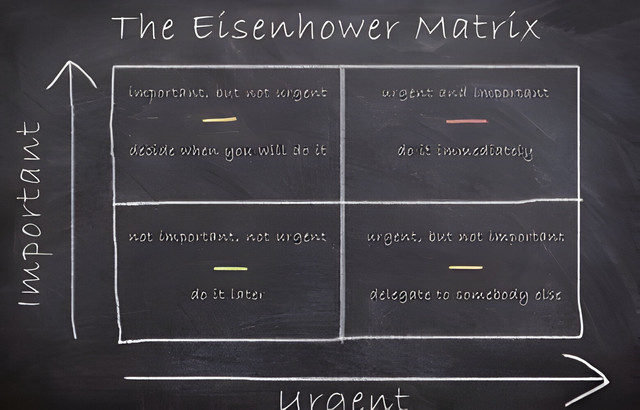 The Eisenhower Matrix
important, but not urgent
decide when you will do it
urgent and important
do it immediately
not important, not urgent
do it later
urgent, but not important
delegate to somebody else
Important
Urgent